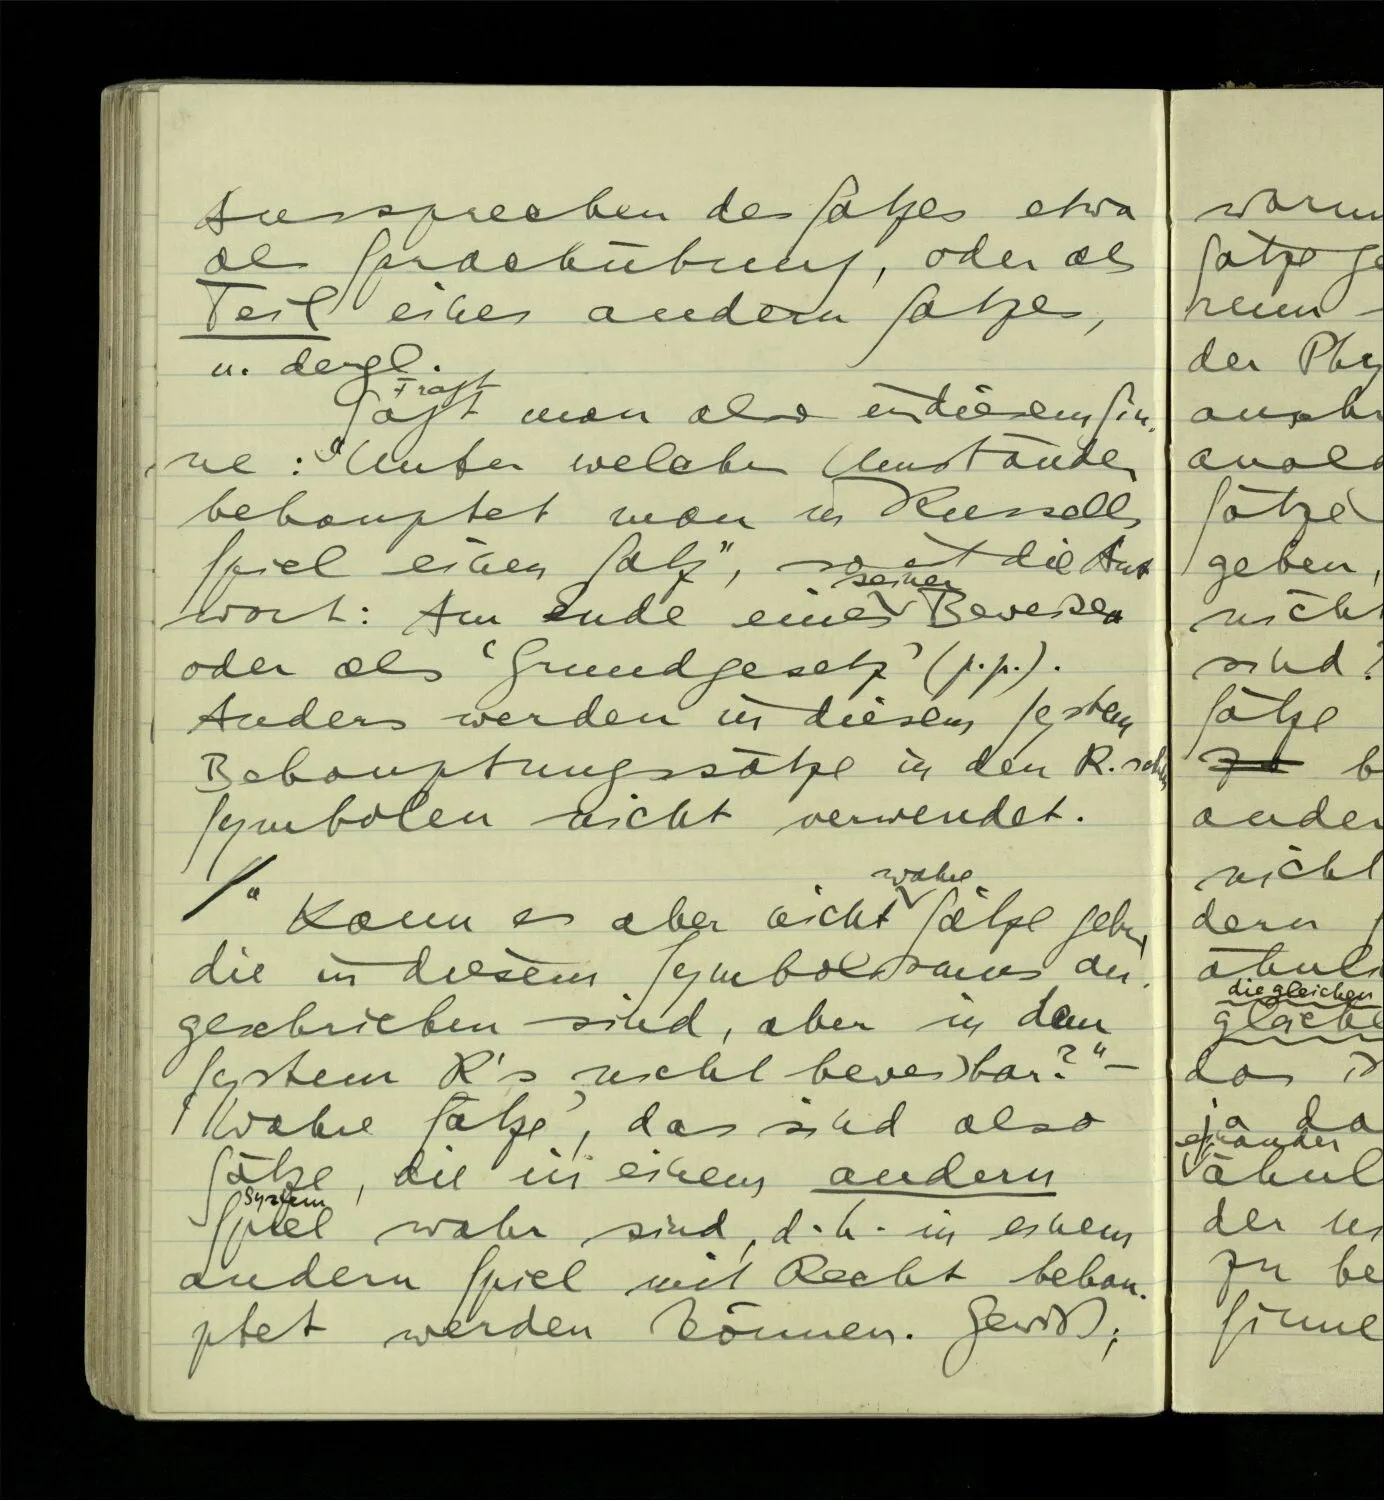 Aussprechen des Satzes etwa
als Sprachübung, oder als
Teil eines andern Satzes,
u. dergl.
Fragt
Sagt man also in diesem Sin-
ne: „Unter welchen Umständen
behauptet man in Russell's
Spiel einen Satz”, so ist die Ant
wort: Am ende eines Beweises
seiner
oder als ‘Grundgesetz’ (p.p.).
Anders werden in diesem System
Behauptungssätze in den R.schen
Symbolen nicht verwendet.
/ “Kann es aber nicht wahre Sätze geben,
die in diesem Symbolismus an-
geschrieben sind, aber in dem
System R's nicht beweisbar?“ –
‘Wahre Sätze’, das sind also
Sätze, die in einem andern
System
Spiel wahr sind, d.h. in einem
andern Spiel mit Recht behau-
ptet werden können. Gewiß;
warum
Sätze ge
renn
der Phy
Sätze
geben,
nicht
sind?
Sätze
zu b
ander
nicht
dern
ähnli
die gleichen
gleiche
das is
ja da
einander
ähnl
der
zu be
Sinne